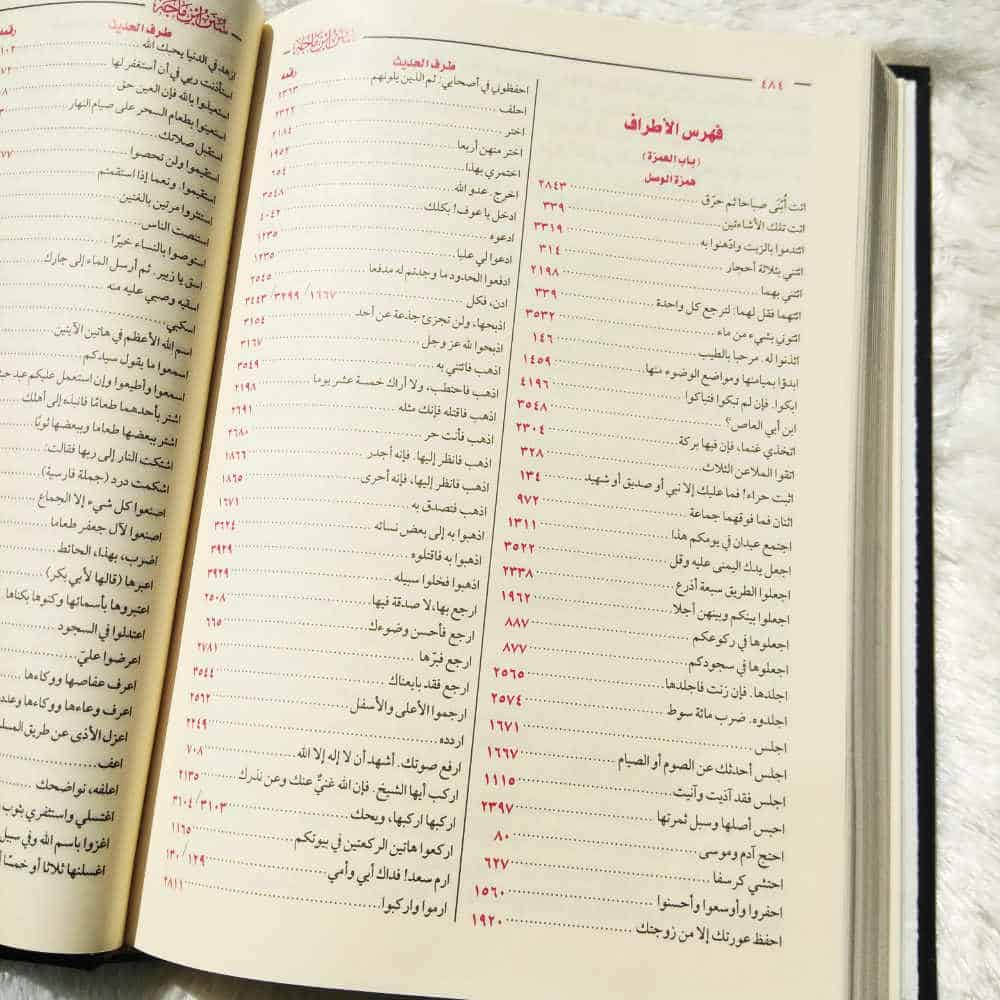 ٤٨٤
سنن ابن ماجه
فهرس الأطراف
(باب الهمزة)
همزة الوصل
ائت أُبْنَى صباحا ثم حرّق ٢٨٤٣
ائت تلك الأشاءتين ٣٣٩
ائتدموا بالزيت وادّهنوا به ٣٣١٩
ائتني بثلاثة أحجار ٣١٤
ائتني بهما ٢١٩٨
ائتهما فقل لهما: لترجع كل واحدة ٣٣٩
ائتوني بشيء من ماء ٣٥٣٢
ائذنوا له. مرحبا بالطيب ١٤٦
ابدؤا بميامنها ومواضع الوضوء منها ١٤٥٩
ابكوا. فإن لم تبكوا فتباكوا ٤١٩٦
ابن أبي العاص؟ ٣٥٤٨
اتخذي غنما، فإن فيها بركة ٢٣٠٤
اتقوا الملاعن الثلاث ٣٢٨
اثبت حراء! فما عليك إلا نبي أو صديق أو شهيد ١٣٤
اثنان فما فوقهما جماعة ٩٧٢
اجتمع عيدان في يومكم هذا ١٣١١
اجعل يدك اليمنى عليه وقل ٣٥٢٢
اجعلوا الطريق سبعة أذرع ٢٣٣٨
اجعلوا بينكم وبينهن أجلا ١٩٦٢
اجعلوها في ركوعكم ٨٨٧
اجعلوها في سجودكم ٨٧٧
اجلدها. فإن زنت فاجلدها ٢٥٦٥
اجلدوه. ضرب مائة سوط ٢٥٧٤
اجلس ١٦٧١
اجلس أحدثك عن الصوم أو الصيام ١٦٦٧
اجلس فقد آذيت وآنيت ١١١٥
احبس أصلها وسبل ثمرتها ٢٣٩٧
احتج آدم وموسى ٨٠
احتشي كرسفا ٦٢٧
احفروا وأوسعوا وأحسنوا ١٥٦٠
احفظ عورتك إلا من زوجتك ١٩٢٠
طرف الحديث رقمه
احفظوني في أصحابي: ثم الذين يلونهم ٢٣٦٣
احلف ٢٣٢٢
اختر ٢١٨٤
اختر منهن أربعا ١٩٥٢
اختمري بهذا ٦٥٤
اخرج. عدو الله ٣٥٤٨
ادخل يا عوف! بكلك ٤٠٤٢
ادعوه ١٢٣٥
ادعوا لي عليا ١٢٣٥
ادفعوا الحدود ما وجدتم له مدفعا ٢٥٤٥
ادن، فكل ١٦٦٧/ ٣٢٩٩/ ٣٤٤٣
اذبحها، ولن تجزئ جذعة عن أحد ٣١٥٤
اذبحوا لله عز وجل ٣١٦٧
اذهب فائتني به ٣٥٤٩
اذهب فاحتطب، ولا أراك خمسة عشر يوما ٢١٩٨
اذهب فاقتله فإنك مثله ٢٦٩١
اذهب فأنت حر ٢٦٨٠
اذهب فانظر إليها. فإنه أجدر ١٨٦٦
اذهب فانظر إليها، فإنه أحرى ١٨٦٥
اذهب فتصدق به ١٦٧١
اذهبوا به إلى بعض نسائه ٣٦٢٤
اذهبوا به فاقتلوه ٣٩٢٩
اذهبوا فخلوا سبيله ٣٩٢٩
ارجع بها، لا صدقة فيها ٢٥٠٨
ارجع فأحسن وضوءك ٦٦٥
ارجع فبرّها ٢٧٨١
ارجع فقد بايعناك ٣٥٤٤
ارجموا الأعلى والأسفل ٢٥٦٢
اردده ٢٢٤٩
ارفع صوتك. أشهد أن لا إله إلا الله ٧٠٨
اركب أيها الشيخ. فإن الله غنيٌّ عنك وعن نذرك ٢١٣٥
اركبها اركبها، ويحك ٣١٠٣/ ٣١٠٤
اركعوا هاتين الركعتين في بيوتكم ١١٦٥
ارم سعد! فداك أبي وأمي ١٢٩/ ١٣٠
ارموا واركبوا ٢٨١١
سنن ابن ماجه
طرف الحديث رقمه
ازهد في الدنيا يحبك الله
استأذنت ربي في أن أستغفر لها
استعيذوا بالله فإن العين حق
استعينوا بطعام السحر على صيام النهار
استقبل صلاتك
استقيموا ولن تحصوا
استقيموا. ونعما إذا استقمتم
استنثروا مرتين بالغتين
استنصت الناس
استوصوا بالنساء خيرًا
اسق يا زبير. ثم أرسل الماء إلى جارك
اسقيه وصبي عليه منه
اسكبي
اسم الله الأعظم في هاتين الآيتين
اسمعوا ما يقول سيدكم
اسمعوا وأطيعوا وإن استعمل عليكم عبد
اشتر بأحدهما طعامًا فانبذه إلى أهلك
اشتر ببعضها طعاما وببعضها ثوبًا
اشتكت النار إلى ربها فقالت:
اشكمت درد (جملة فارسية)
اصنعوا كل شيء إلا الجماع
اصنعوا لآل جعفر طعاما
اضرب، بهذا، الحائط
اعبرها (قالها لأبي بكر)
اعتبروها بأسمائها وكنوها بكناها
اعتدلوا في السجود
اعرضوا عليّ
اعرف عفاصها ووكاءها
اعرف وعاءها ووكاءها
اعزل الأذى عن طريق
اعف
اعلفه، نواضحك
اغتسلي واستثفري بثوب
اغزوا باسم الله وفي سبيل
اغسلنها ثلاثا أو خمسًا